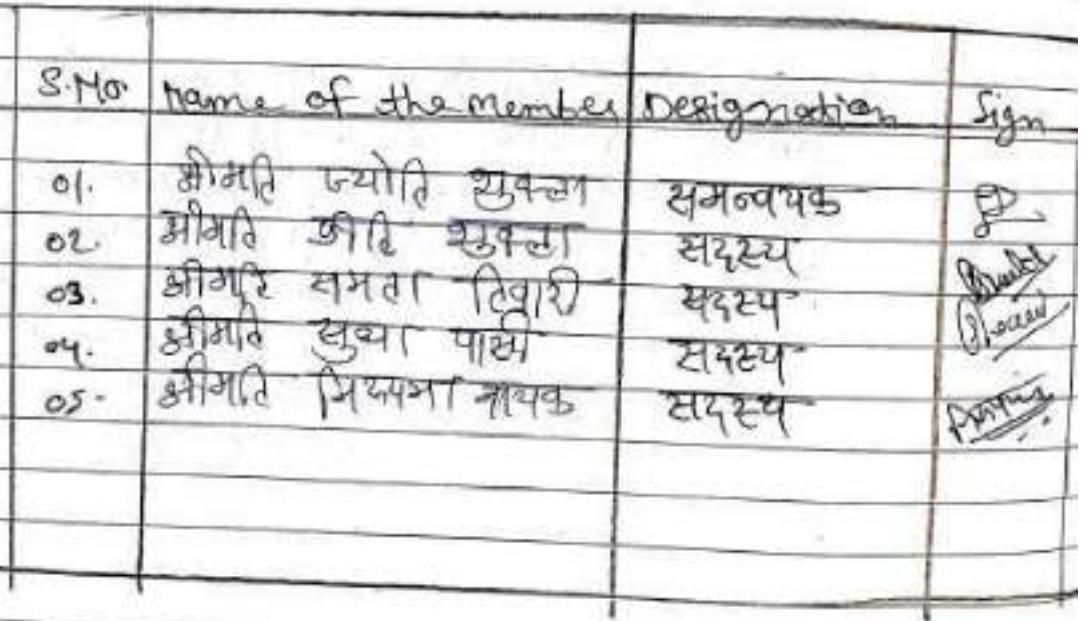 S.No. Name of the member Designation Sign
01. श्रीमति ज्योति शुक्ला समन्वयक
02. श्रीमति शुक्ला सदस्य
03. श्रीमति समता तिवारी सदस्य
04. श्रीमति सुधा सदस्य
05. श्रीमति नायक सदस्य